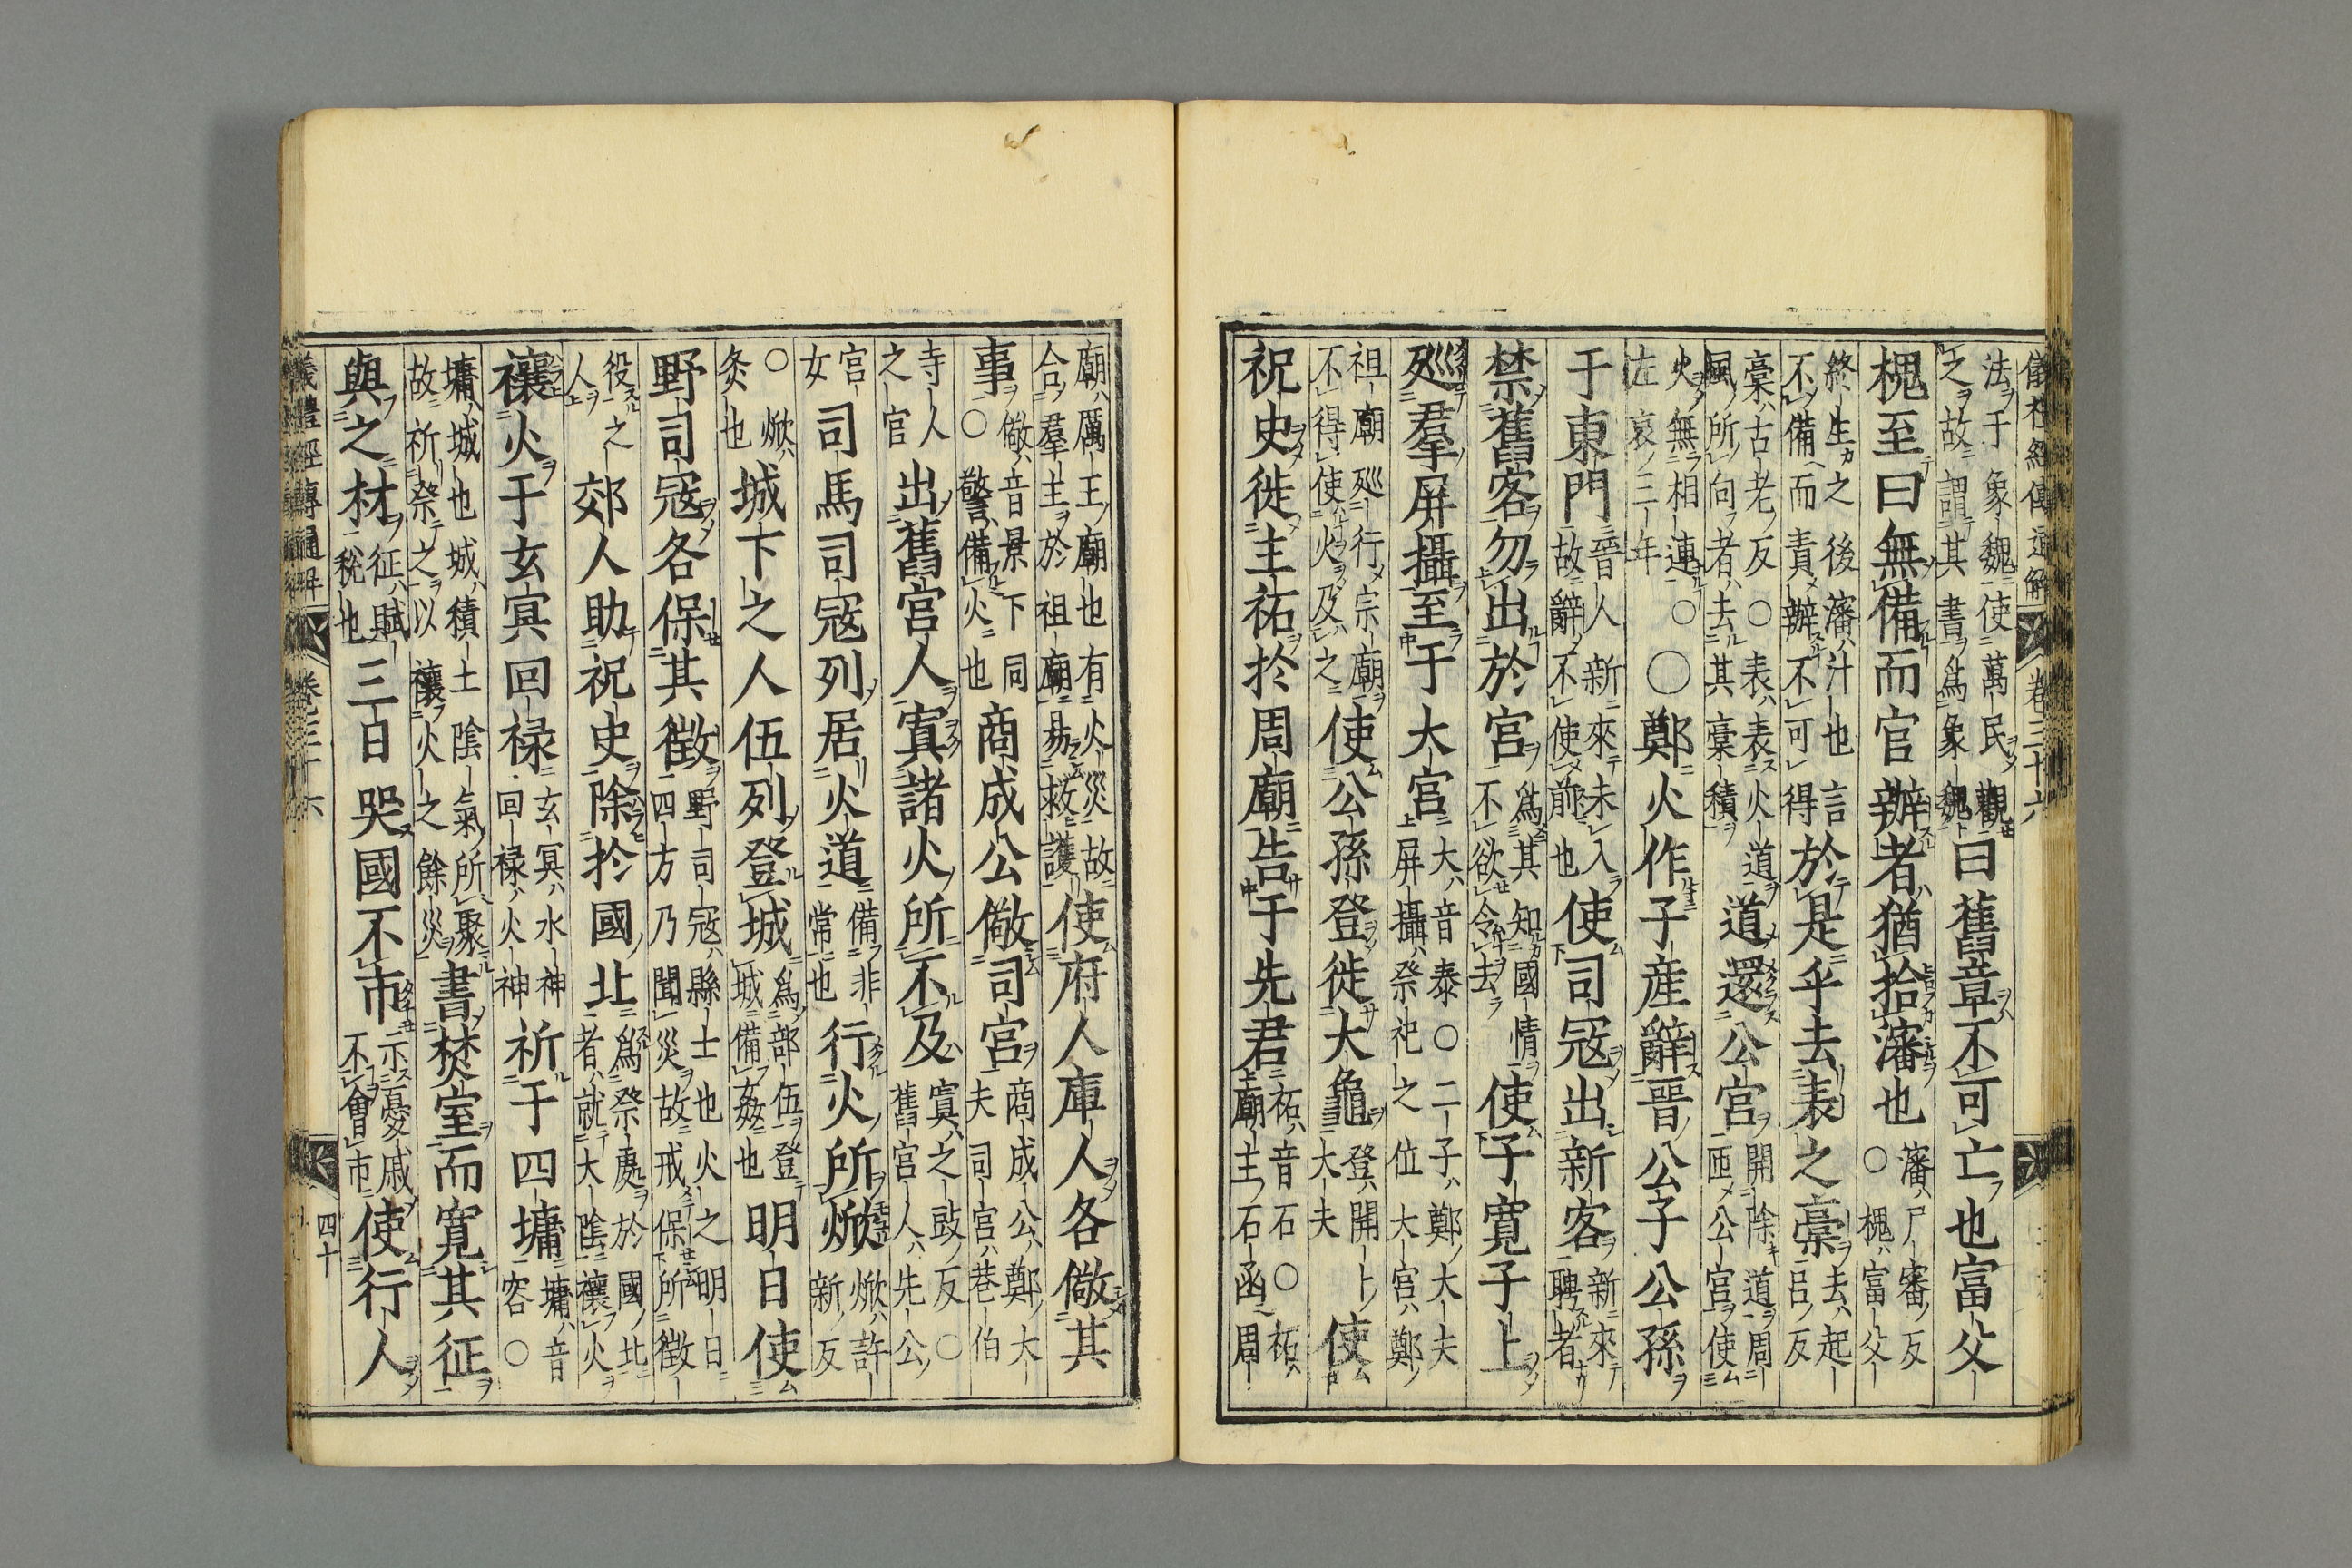 儀禮經傳通解 卷三十六
法于象魏使萬民觀之故謂其書爲象魏曰舊章不可亡也富父
槐至曰無備而官辦者猶拾瀋也瀋尸審反〇槐富父
終生之後瀋汁也言不備而責辦不可得於是乎去表之槀去起呂反
槀古老反〇表表火道風所向者去其槀積道還公宮開除道周匝公宮使
火無相連〇左哀三年〇鄭火作子産辭晉公子公孫
于東門晉人新來未入故辭不使前也使司冦出新客新來聘者
禁舊客勿出於宮爲其知國情不欲令去使子寬子上
廵羣屏攝至于大宮大音泰〇二子鄭大夫屏攝祭祀之位大宮鄭
祖廟廵行宗廟不得使火及之使公孫登徙大龜登開卜大夫使
祝史徙主祏於周廟告于先君祏音石〇祏廟主石函周
廟厲王廟也有火災故合羣主於祖廟易救護使府人庫人各儆其
事儆音景下同〇警備火也商成公儆司宮商成公鄭大夫司宮巷伯
寺人之官出舊宮人寘諸火所不及寘之豉反〇舊宮人先公
宮女司馬司冦列居火道備非常也行火所焮焮許新反
〇焮炙也城下之人伍列登城爲部伍登城備姦也明日使
野司冦各保其徵野司冦縣士也火之明日四方乃聞災故戒保所徵
役之人郊人助祝史除於國北爲祭處於國北者就大陰禳火
禳火于玄冥回禄玄冥水神回禄火神祈于四墉墉音容〇
墉城也城積土陰氣所聚故祈祭之以禳火之餘災書焚室而寬其征
與之材征賦稅也三日哭國不市示憂戚不會市使行人
儀禮經傳通解 卷三十六 四十